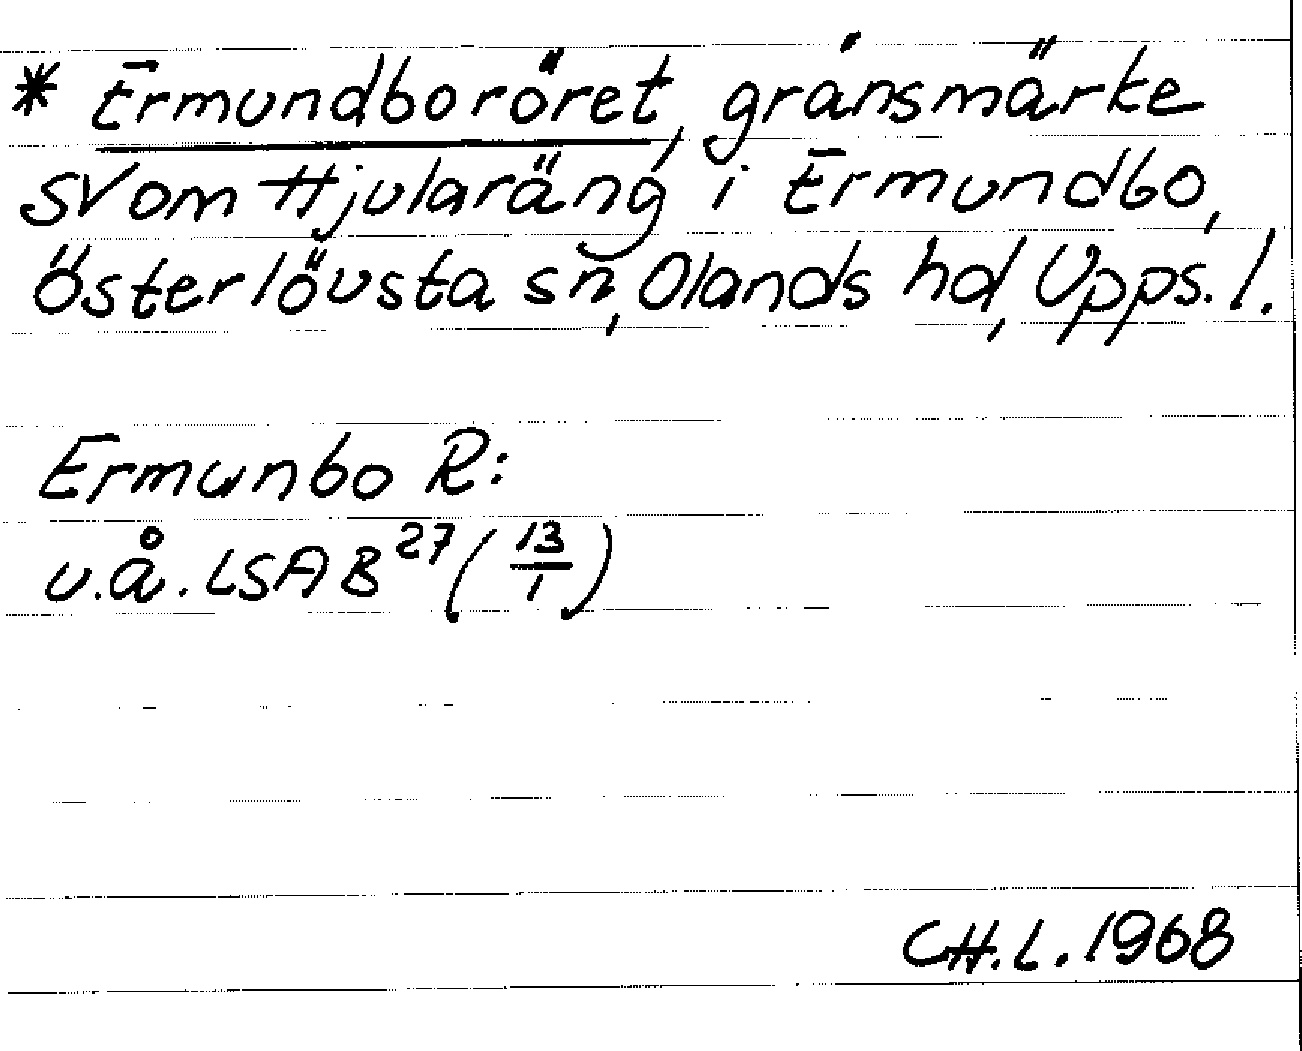 * Ermundboröret, gränsmärke
SV om Hjularäng i Ermundbo,
Österlövsta sn, Olands hd, Upps. l.
Ermunbo R:
u.å. LSA B²⁷ (13/1)
CH.L. 1968